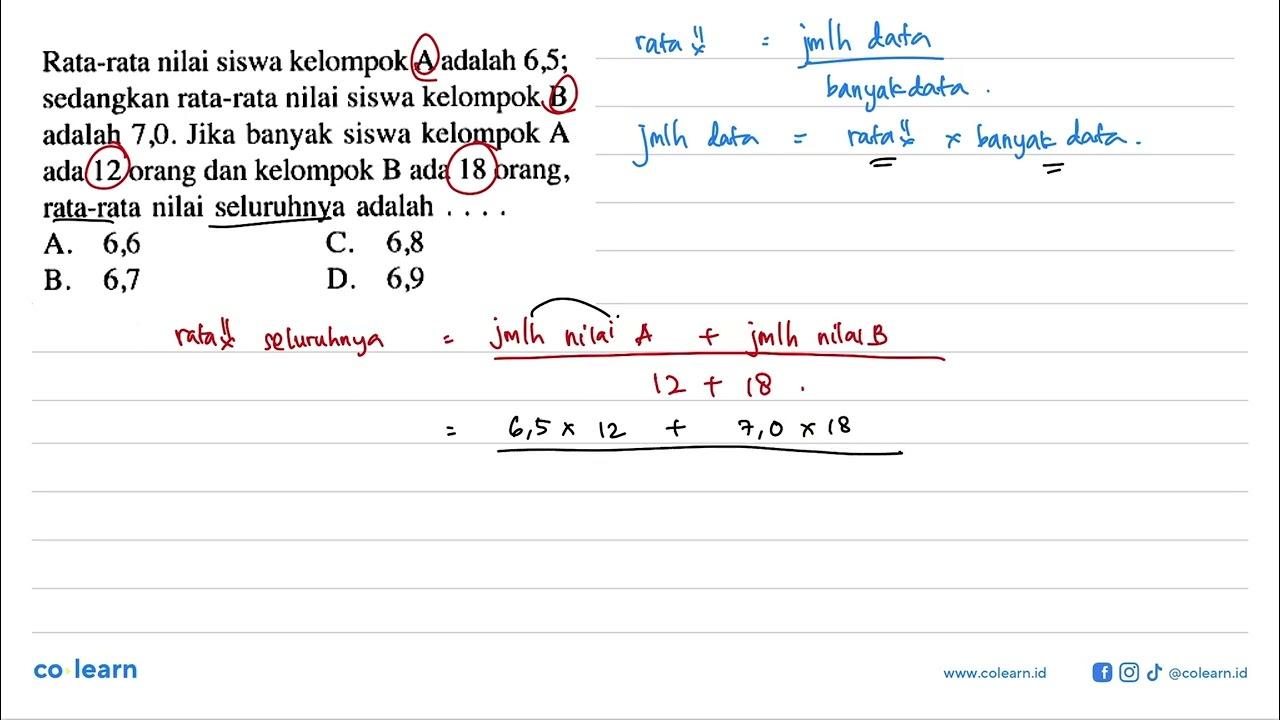 Rata-rata nilai siswa kelompok A adalah 6,5;
sedangkan rata-rata nilai siswa kelompok B
adalah 7,0. Jika banyak siswa kelompok A
ada 12 orang dan kelompok B ada 18 orang,
rata-rata nilai seluruhnya adalah . . . .
A. 6,6 C. 6,8
B. 6,7 D. 6,9
rata" x = jmlh data
banyak data .
jmlh data = rata" x × banyak data .
rata" x seluruhnya = jmlh nilai A + jmlh nilai B
12 + 18 .
= 6,5 × 12 + 7,0 × 18
co learn
www.colearn.id @colearn.id